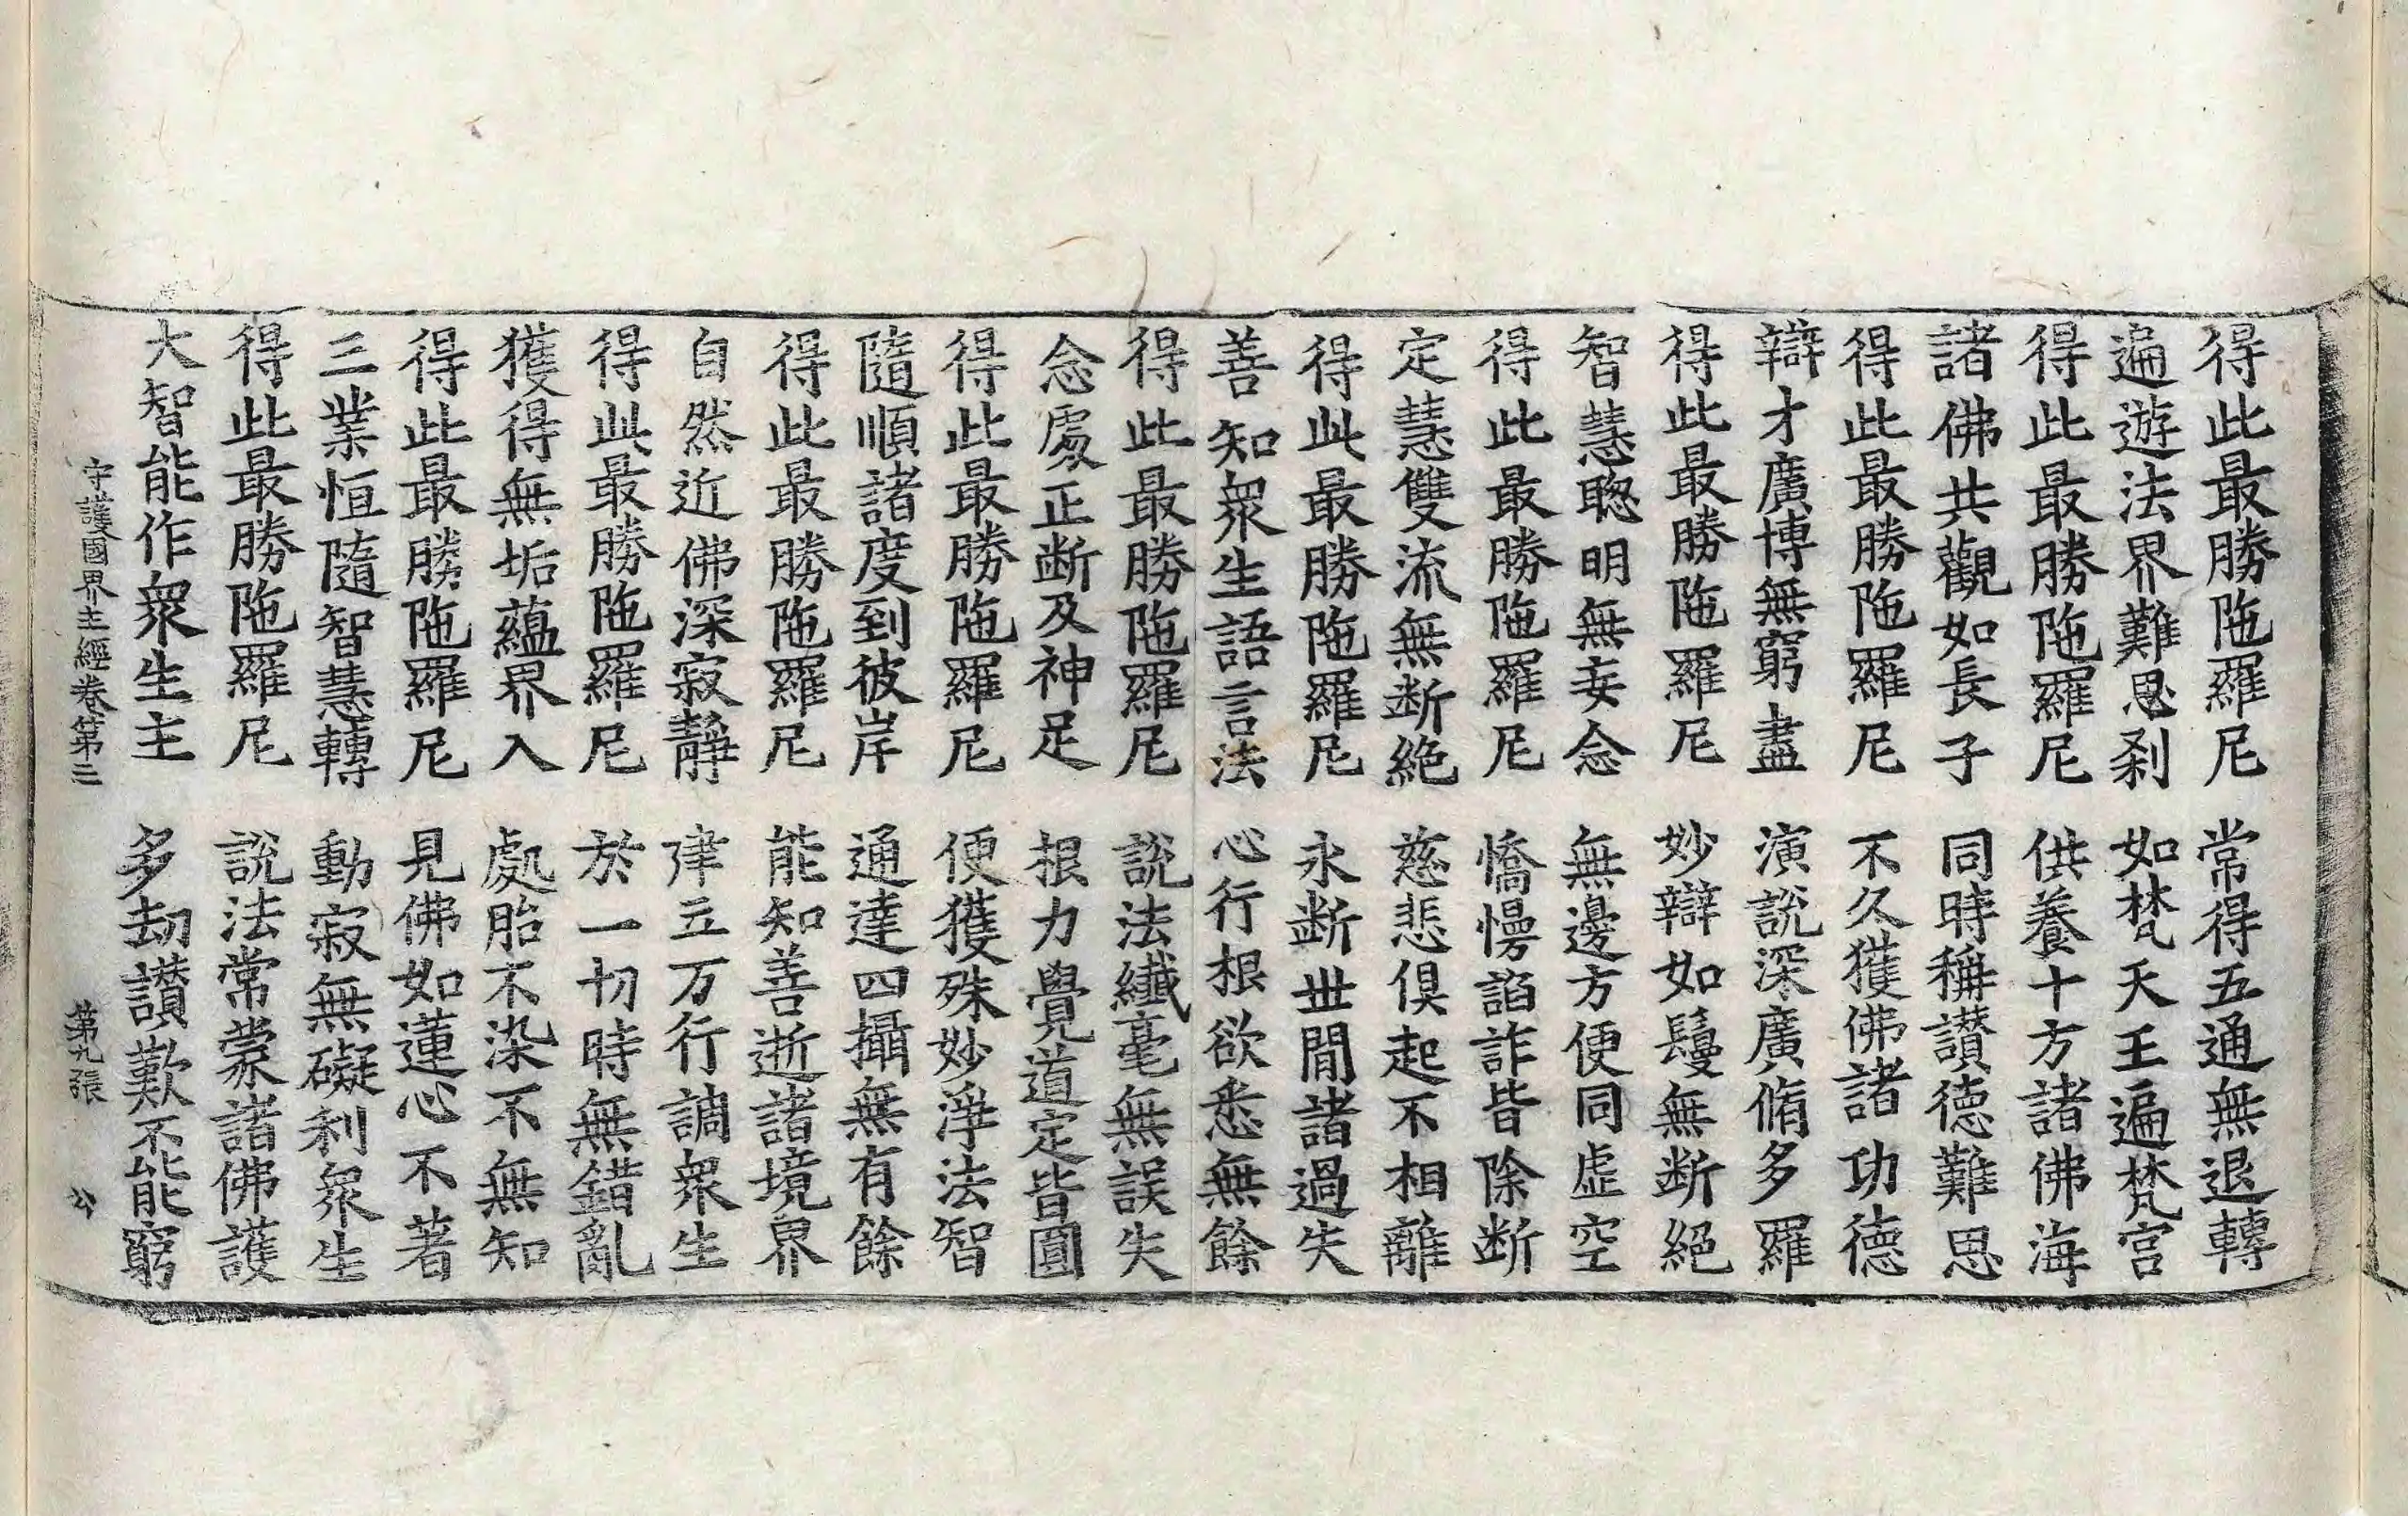 得此最勝陁羅尼　常得五通無退轉
遍遊法界難思刹　如梵天王遍梵宮
得此最勝陁羅尼　供養十方諸佛海
諸佛共觀如長子　同時稱讃德難思
得此最勝陁羅尼　不久獲佛諸功德
辯才廣博無窮盡　演說深廣脩多羅
得此最勝陁羅尼　妙辯如鬘無断絕
智慧聦明無妄念　無邊方便同虛空
得此最勝陁羅尼　憍慢諂詐皆除断
定慧雙流無断絕　慈悲俱起不相離
得此最勝陁羅尼　永断世間諸過失
善知衆生語言法　心行根欲悉無餘
得此最勝陁羅尼　說法纖毫無誤失
念處正断及神足　根力覺道定皆圓
得此最勝陁羅尼　便獲殊妙淨法智
隨順諸度到彼岸　通達四攝無有餘
得此最勝陁羅尼　能知善逝諸境界
自然近佛深寂靜　建立万行調衆生
得此最勝陁羅尼　於一切時無錯亂
獲得無垢蘊界入　處胎不染不無知
得此最勝陁羅尼　見佛如蓮心不著
三業恒隨智慧轉　動寂無礙利衆生
得此最勝陁羅尼　說法常蒙諸佛護
大智能作衆生主　多劫讃歎不能窮
守護國界主經卷第三　第九張　公